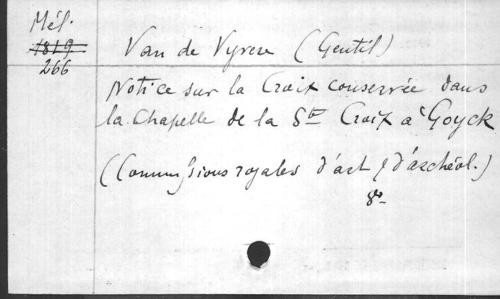 Mél.
1819
266
Van de Vyvere (Gentil)
Notice sur la Croix conservée dans
la Chapelle de la Ste Croix à Goyck
(Commissions royales d'art & d'archéol.)
8º